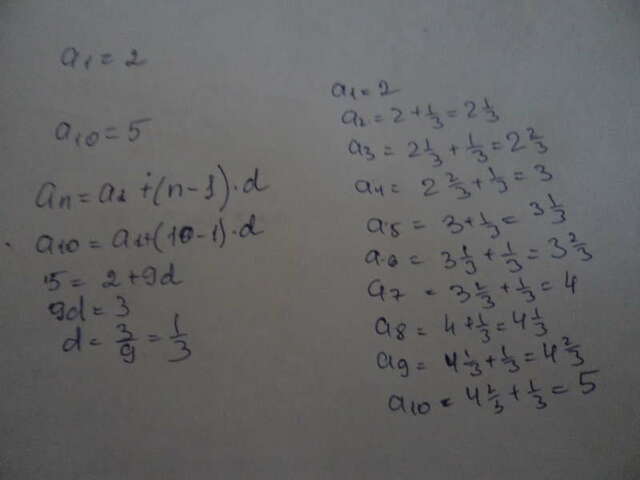 a₁ = 2
a₁₀ = 5
aₙ = a₁ + (n - 1) · d
a₁₀ = a₁ + (10 - 1) · d
5 = 2 + 9d
9d = 3
d = 3/9 = 1/3
a₁ = 2
a₂ = 2 + 1/3 = 2 1/3
a₃ = 2 1/3 + 1/3 = 2 2/3
a₄ = 2 2/3 + 1/3 = 3
a₅ = 3 + 1/3 = 3 1/3
a₆ = 3 1/3 + 1/3 = 3 2/3
a₇ = 3 2/3 + 1/3 = 4
a₈ = 4 + 1/3 = 4 1/3
a₉ = 4 1/3 + 1/3 = 4 2/3
a₁₀ = 4 2/3 + 1/3 = 5